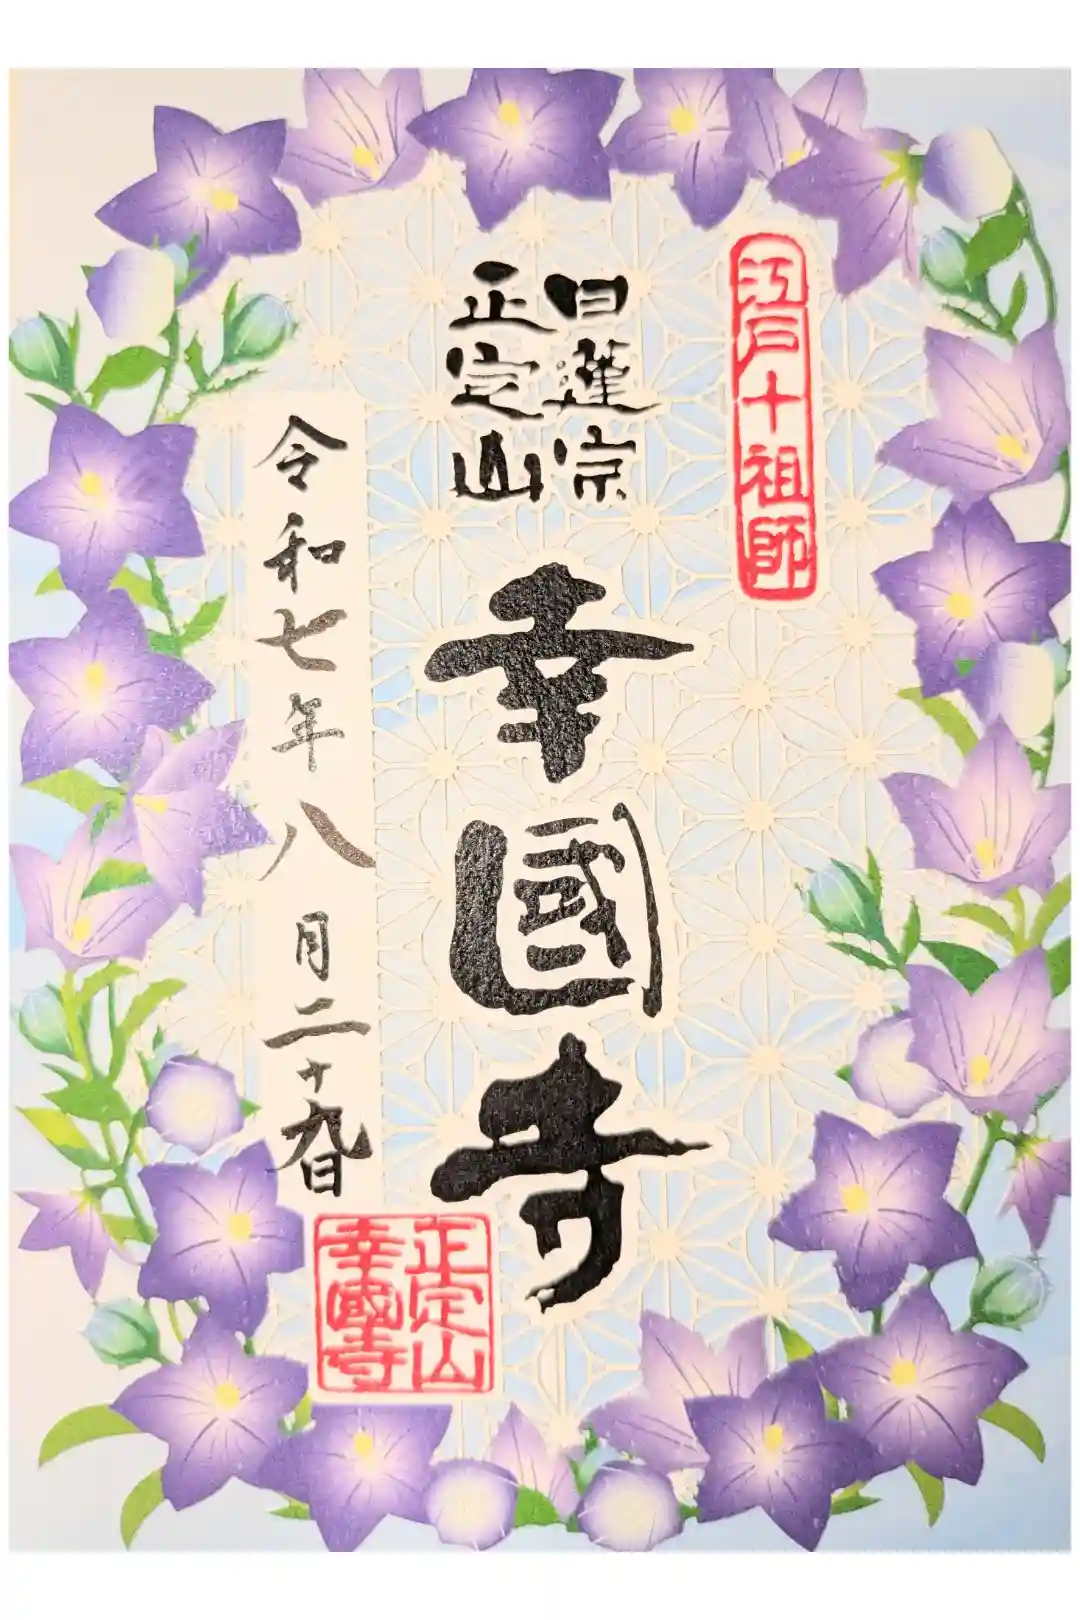 江戸十祖師
日蓮宗
正定山
幸國寺
令和七年八月二十九日
正定山
幸國寺